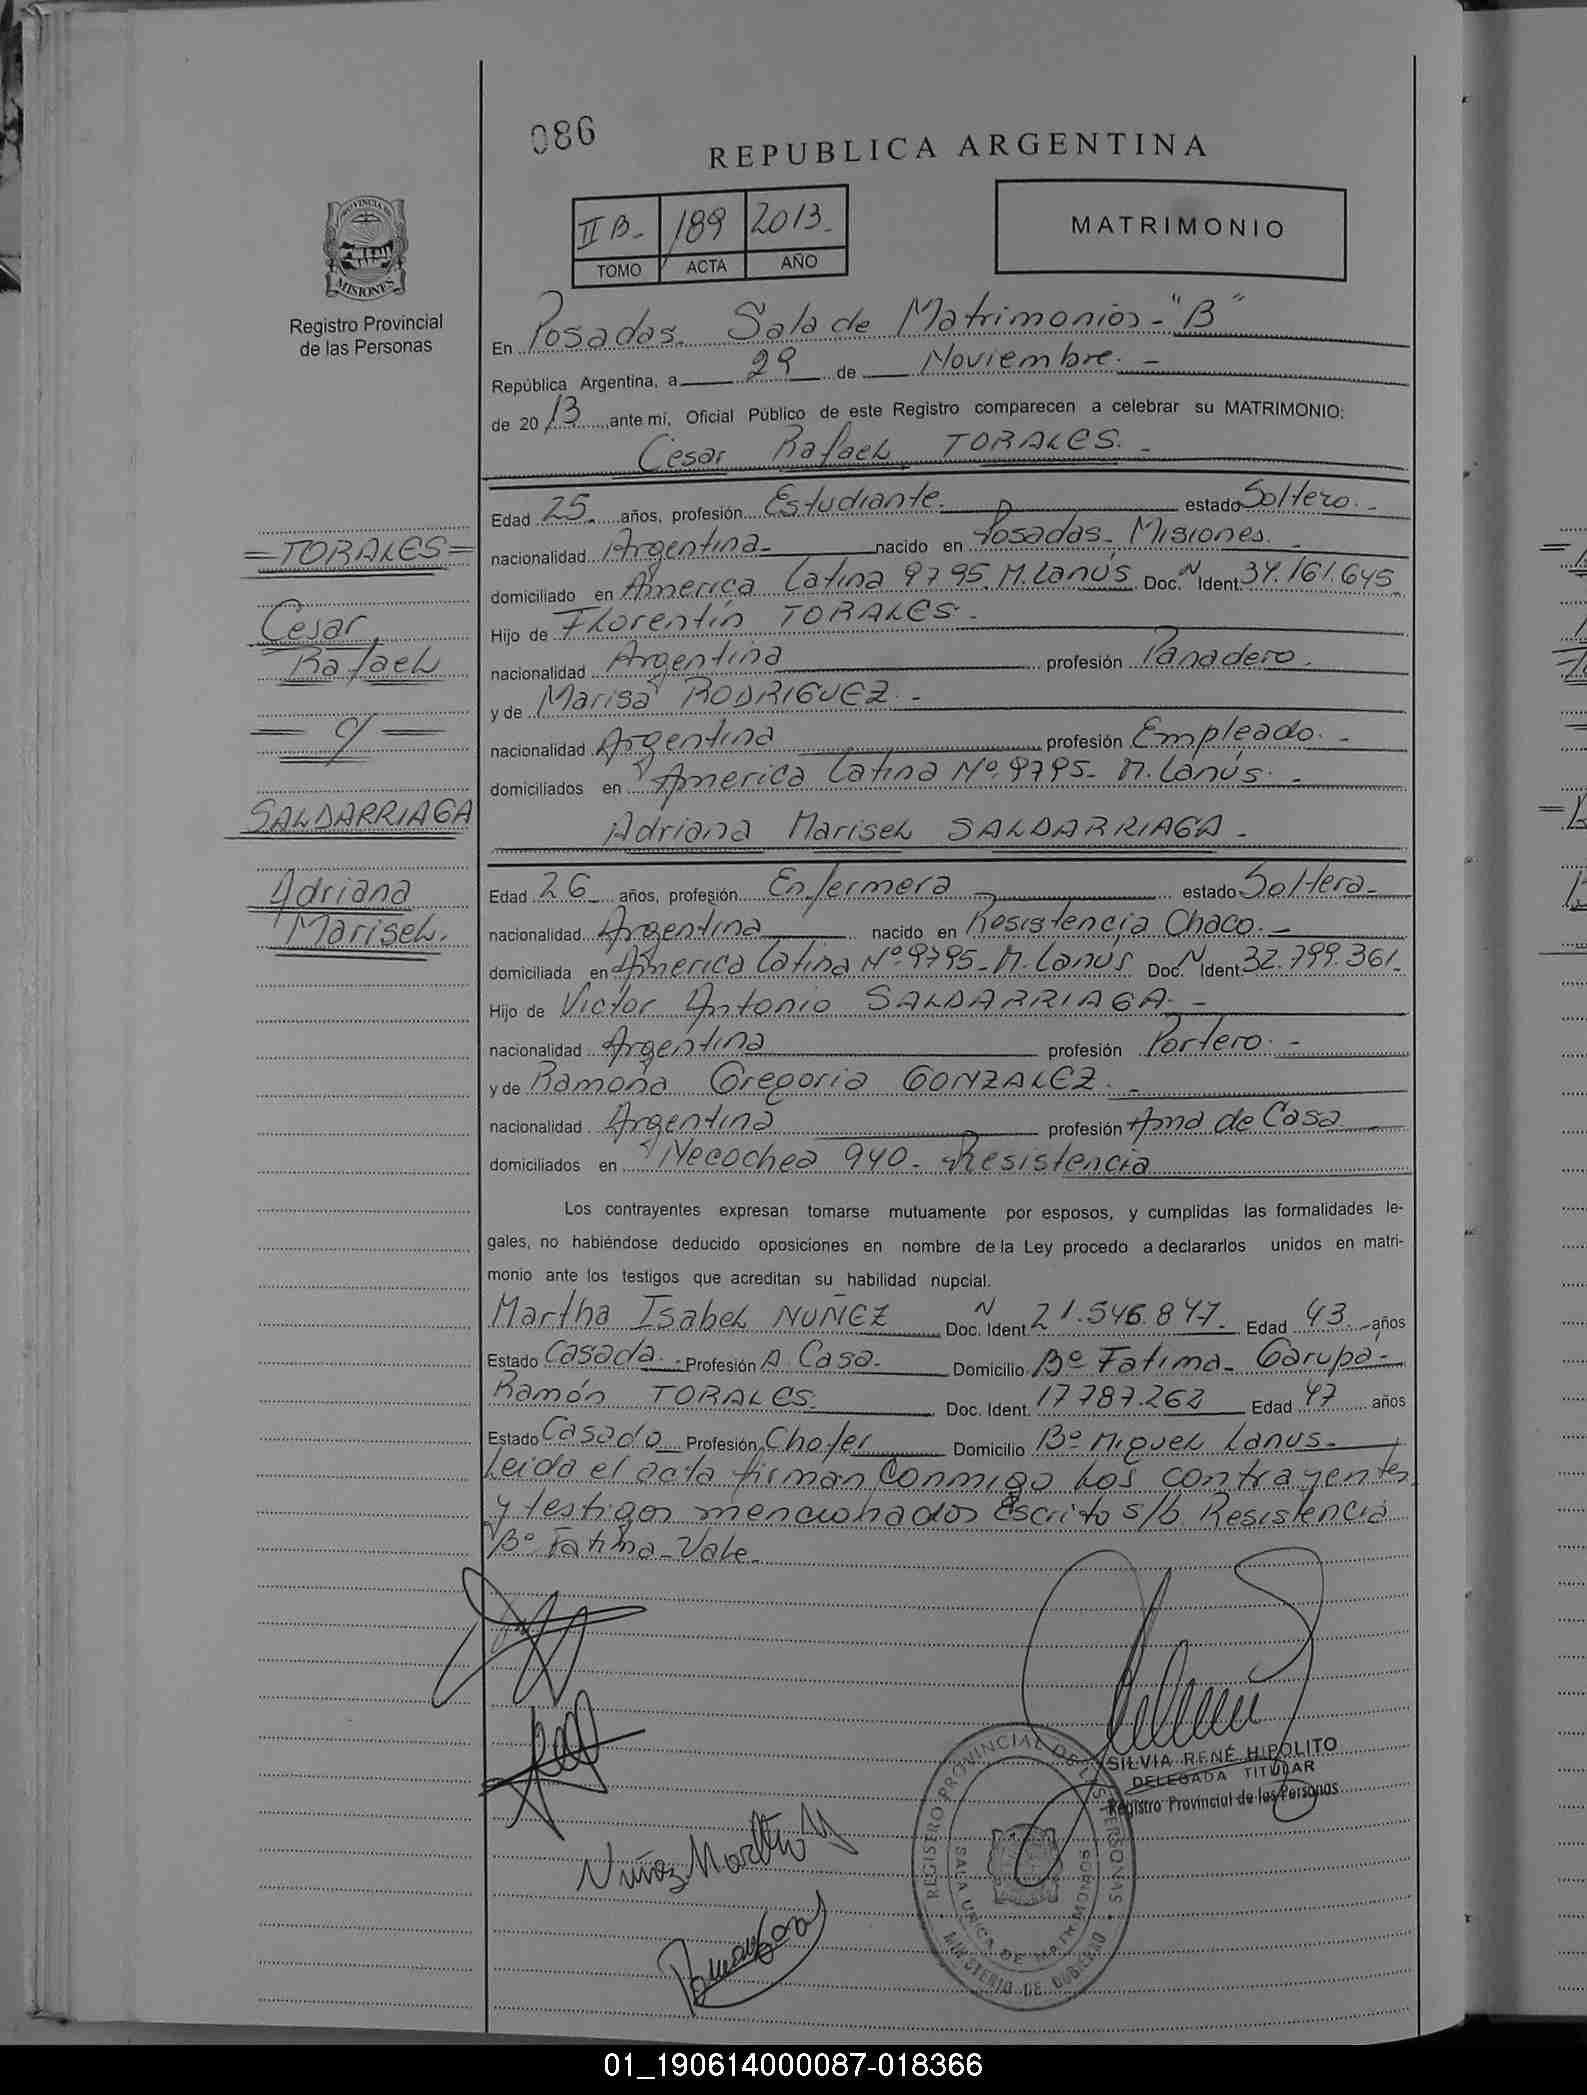 086
REPUBLICA ARGENTINA
II B- 189 2013-
TOMO ACTA AÑO
MATRIMONIO
PROVINCIA DE MISIONES
Registro Provincial
de las Personas
En Posadas. Sala de Matrimonios - "B"
República Argentina, a 29 de Noviembre. -
de 2013 ante mí, Oficial Público de este Registro comparecen a celebrar su MATRIMONIO:
Cesar Rafael TORALES. -
Edad 25. años, profesión Estudiante. estado Soltero. -
nacionalidad Argentina- nacido en Posadas- Misiones. -
domiciliado en America Latina 9795. M. Lanús. Doc. N Ident. 34.161.645
Hijo de Florentín TORALES. -
nacionalidad Argentina profesión Panadero.
y de Marisa RODRIGUEZ. -
nacionalidad Argentina profesión Empleado. -
domiciliados en America Latina Nº 9795- M. Lanús. -
Adriana Marisel SALDARRIAGA -
Edad 26 años, profesión Enfermera estado Soltera-
nacionalidad Argentina nacido en Resistencia Chaco. -
domiciliada en America Latina Nº 9795- M. Lanús Doc. N Ident. 32.799.361-
Hijo de Victor Antonio SALDARRIAGA. -
nacionalidad Argentina profesión Portero. -
y de Ramona Gregoria GONZALEZ. -
nacionalidad Argentina profesión Ama de Casa -
domiciliados en Necochea 940- Resistencia
Los contrayentes expresan tomarse mutuamente por esposos, y cumplidas las formalidades le-
gales, no habiéndose deducido oposiciones en nombre de la Ley procedo a declararlos unidos en matri-
monio ante los testigos que acreditan su habilidad nupcial.
Martha Isabel NUÑEZ Doc. Ident. N 21.546.847- Edad 43. años
Estado Casada. Profesión A. Casa. Domicilio Bº Fatima- Garupa-
Ramón TORALES. Doc. Ident. 17.787.262 Edad 47 años
Estado Casado Profesión Chofer Domicilio Bº Miguel Lanus.
Leida el acta firman Conmigo los contrayentes
y testigos mencionados Escrito s/b Resistencia
Bº Fatima- Vale-
=TORALES=
Cesar
Rafael
= c/ =
SALDARRIAGA
Adriana
Marisel.
SILVIA RENÉ HIPOLITO
DELEGADA TITULAR
Registro Provincial de las Personas
REGISTRO PROVINCIAL DE LAS PERSONAS
SALA UNICA DE MATRIMONIOS
MINISTERIO DE GOBIERNO
Nuñez Martha
01_190614000087-018366